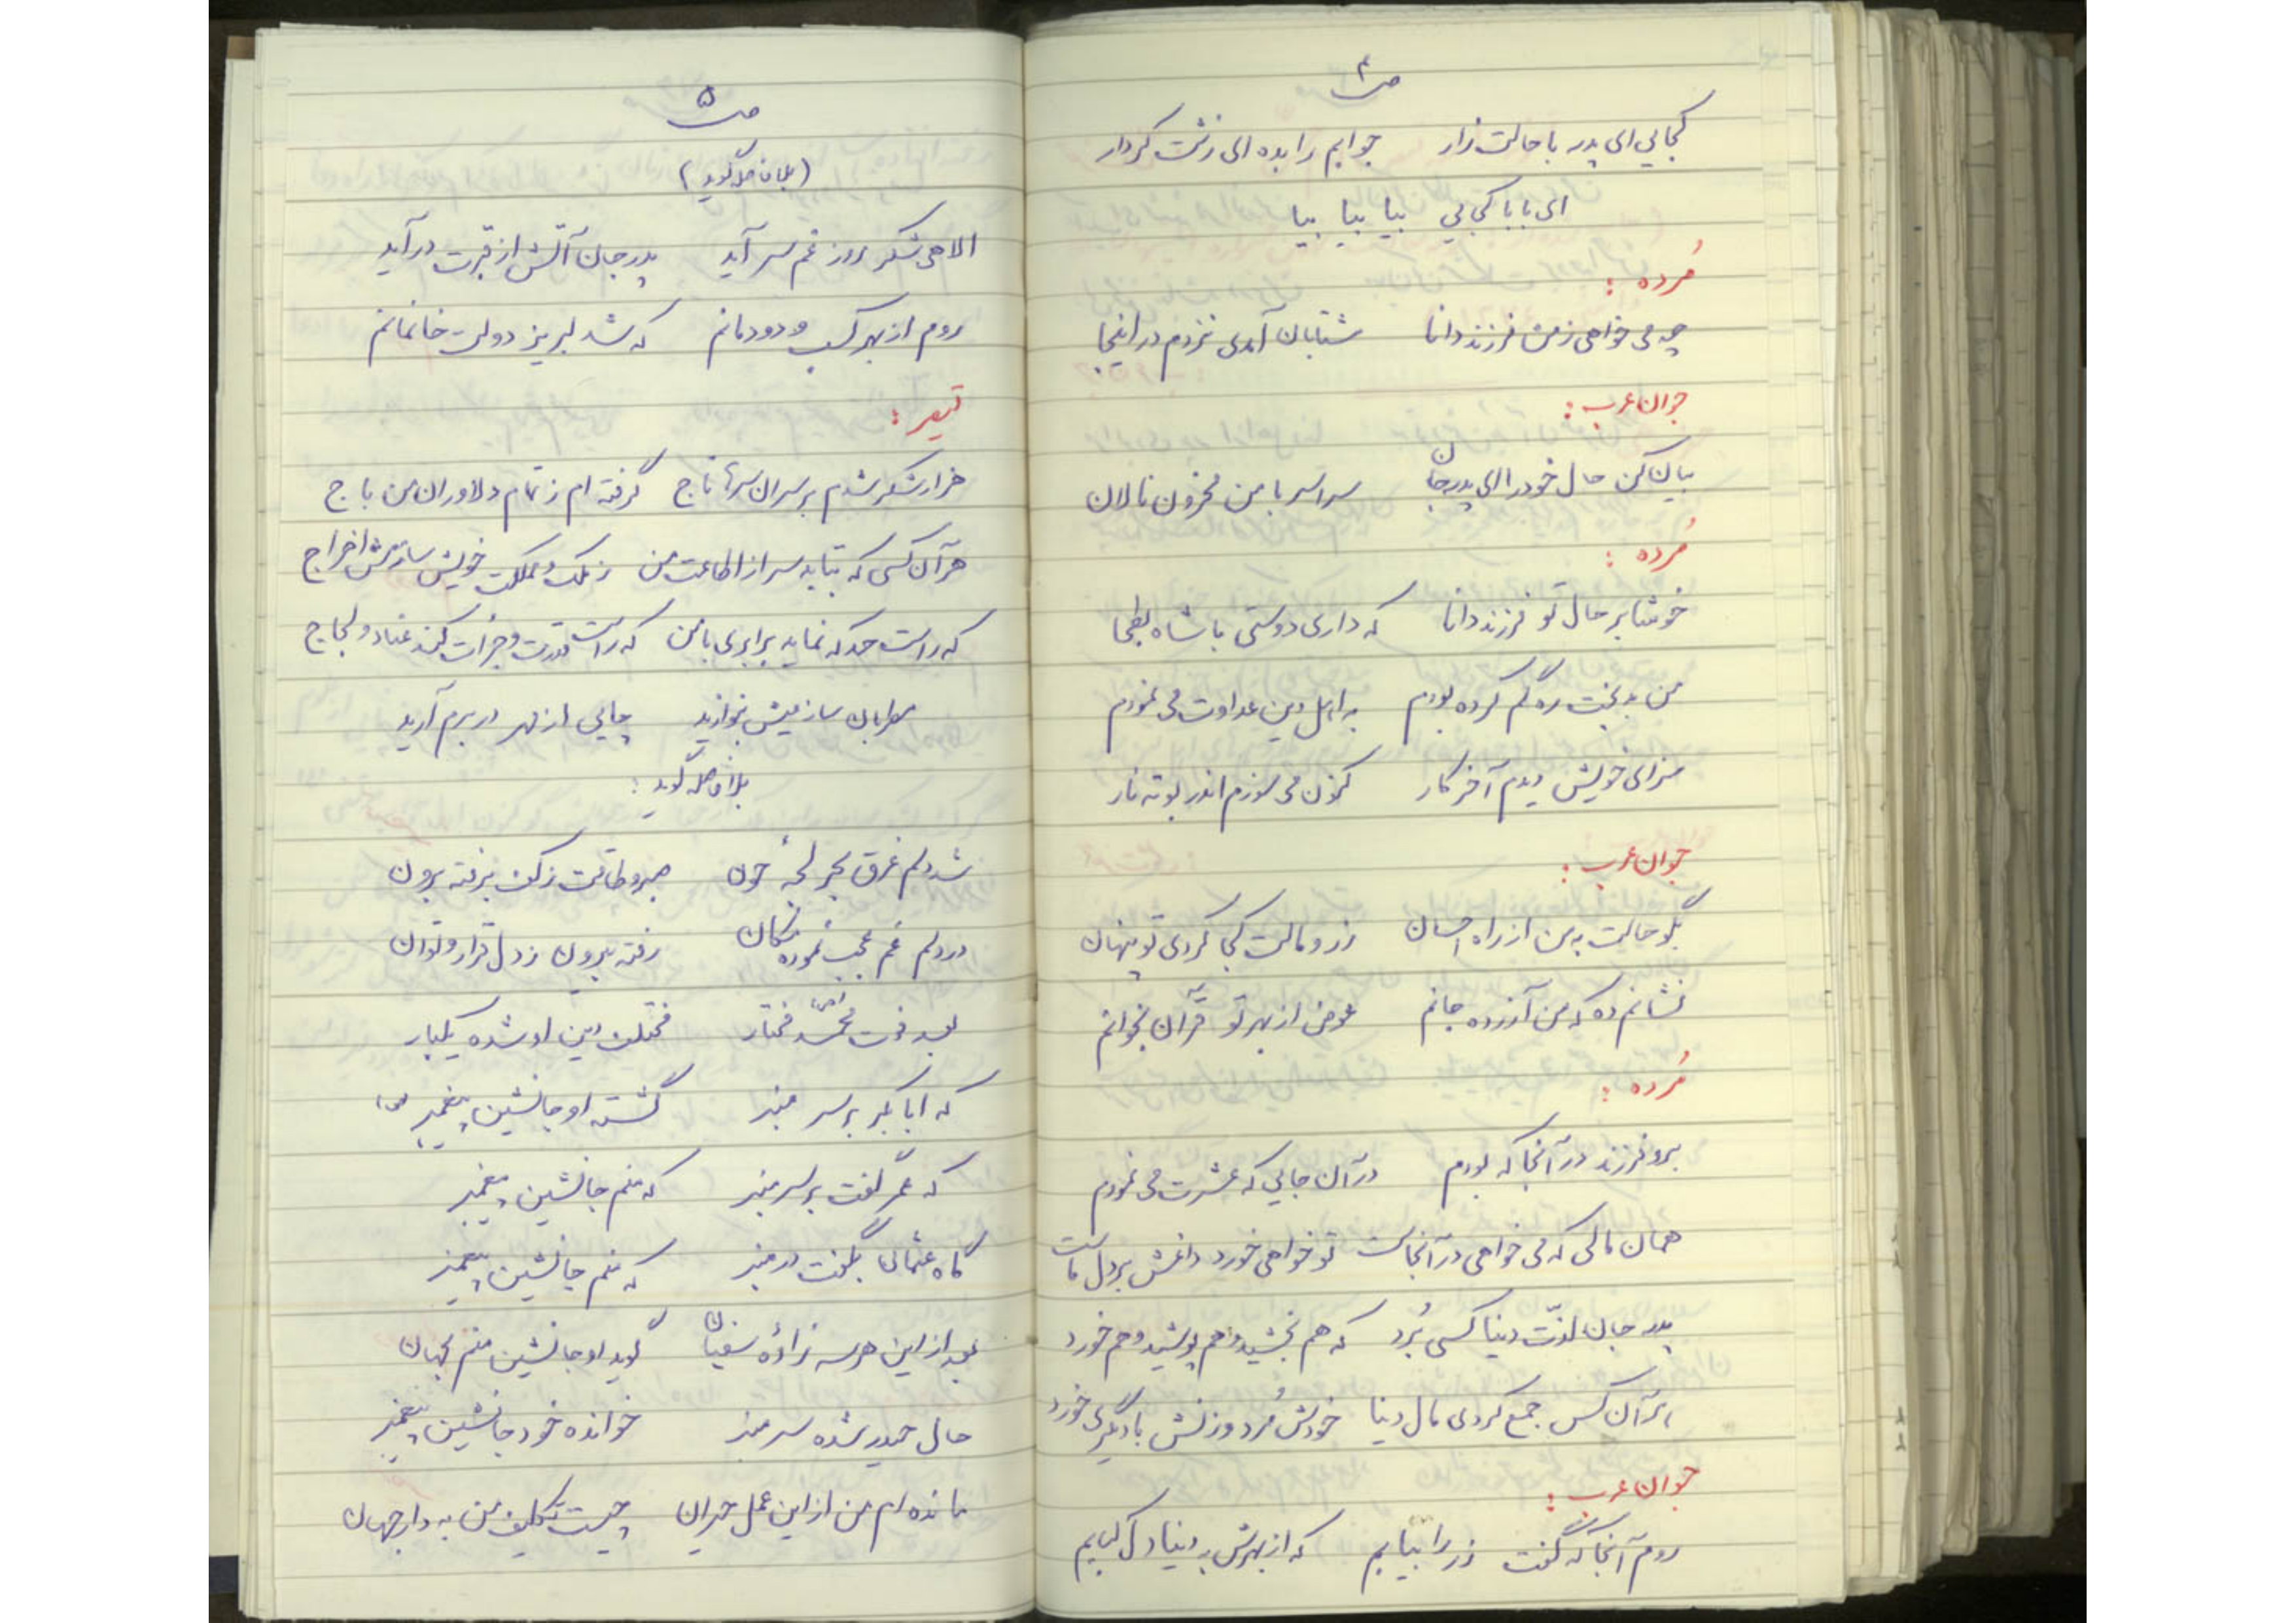 ص ۴
کجایی ای پدر با حالت زار جوابم را بده ای زشت کردار
ای بابا کجایی بیا بیا بیا
مُرده :
چه می خواهی ز من فرزند دانا شتابان آمدی نزدم در اینجا
جوان عرب :
بیان کن حال خود را ای پدرجان سراسر با من محزون نالان
مُرده :
خوشا بر حال تو فرزند دانا که داری دوستی با شاه بطحا
من بدبخت ره گم کرده بودم به اهل دین عداوت می نمودم
سزای خویش دیدم آخر کار کنون می سوزم اندر بوته نار
جوان عرب :
بگو حالت به من از راه احسان زر و مالت کجا کردی تو پنهان
نشانم ده که من آزرده جانم عوض از بهر تو قرآن بخوانم
مُرده :
برو فرزند در آنجا که بودم در آن جایی که عشرت می نمودم
همان مالی که می خواهی در آنجاست تو خواهی خورد داغش بر دل ماست
پدر جان لذّت دنیا کسی بُرد که هم بخشید و هم پوشید و هم خورد
هر آن کس جمع کردی مال دنیا خودش مُرد و زنش با دیگری خورد
جوان عرب :
روم آنجا که گفت زر را بیابم که از بهرش به دنیا دل کبابم
ص ۵
(بلافاصله گوید)
الاهی شکر روز غم سر آید پدر جان آتش از قبرت درآید
روم از بهر کسب و دودمانم که شد لبریز دولت خانمانم
قیصر :
هزار شکر شدم بر سران سرتاج گرفته ام ز تمام دلاوران من باج
هر آن کسی که بتابد سر از اطاعت من ز ملک و مملکت خویش سازمش اخراج
که راست حد که نماید برابری با من که راست قدرت و جرأت کند عناد و لجاج
مطربان ساز عیش بنوازید چایی از بهر در برم آرید
بلافاصله گوید :
شد دلم غرق بحر لجهٔ خون صبر و طاقت ز کف برفته برون
در دلم غم عجب نموده مکان رفته بیرون ز دل قرار و توان
بعد فوت محمّد (ص) مختار مختلف دین او شده یکبار
که ابابکر بر سر منبر گشته او جانشین پیغمبر (ص)
که عمر گفت بر سر منبر که منم جانشین پیغمبر
گاه عثمان بگفت در منبر که منم جانشین پیغمبر
بعد از این هر سه زادهٔ سفیان گوید او جانشین منم بجهان
حال حیدر شده سر منبر خوانده خود جانشین پیغمبر
مانده ام من از این عمل حیران چیست تکلیف من به دار جهان